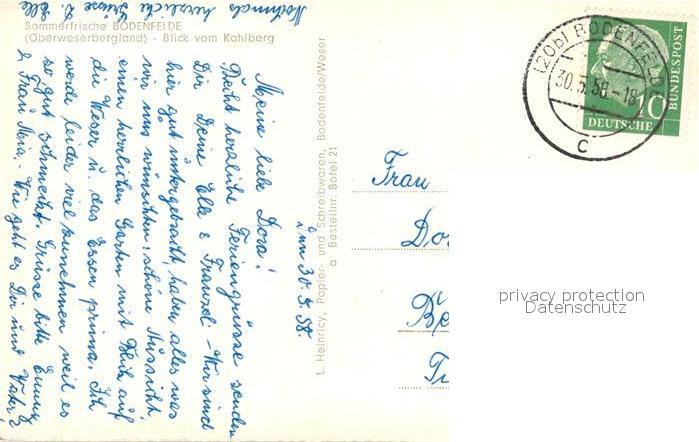 Sommerfrische BODENFELDE
(Oberweserbergland) - Blick vom Kahlberg
L. Heinricy, Papier- und Schreibwaren, Bodenfelde/Weser
a Bestellnr. Bofel 21
den 30.5.58.
Meine liebe Dora!
Recht herzliche Feriengrüsse senden
Dir Deine Elle & Franzel. - Wir sind
hier gut untergebracht, haben alles was
wir uns wünschten: schöne Aussicht,
einen herrlichen Garten mit Blick auf
die Weser u. das Essen prima. Ich
werde leider viel zunehmen weil es
so gut schmeckt. Grüsse bitte
& Frau Wie geht es Dir und Vater?
Nochmals herzliche Grüsse D. Elle
Frau
Do
Be
(20b) BODENFELDE
30.5.58.-18
C
10
DEUTSCHE
BUNDESPOST
privacy protection
Datenschutz